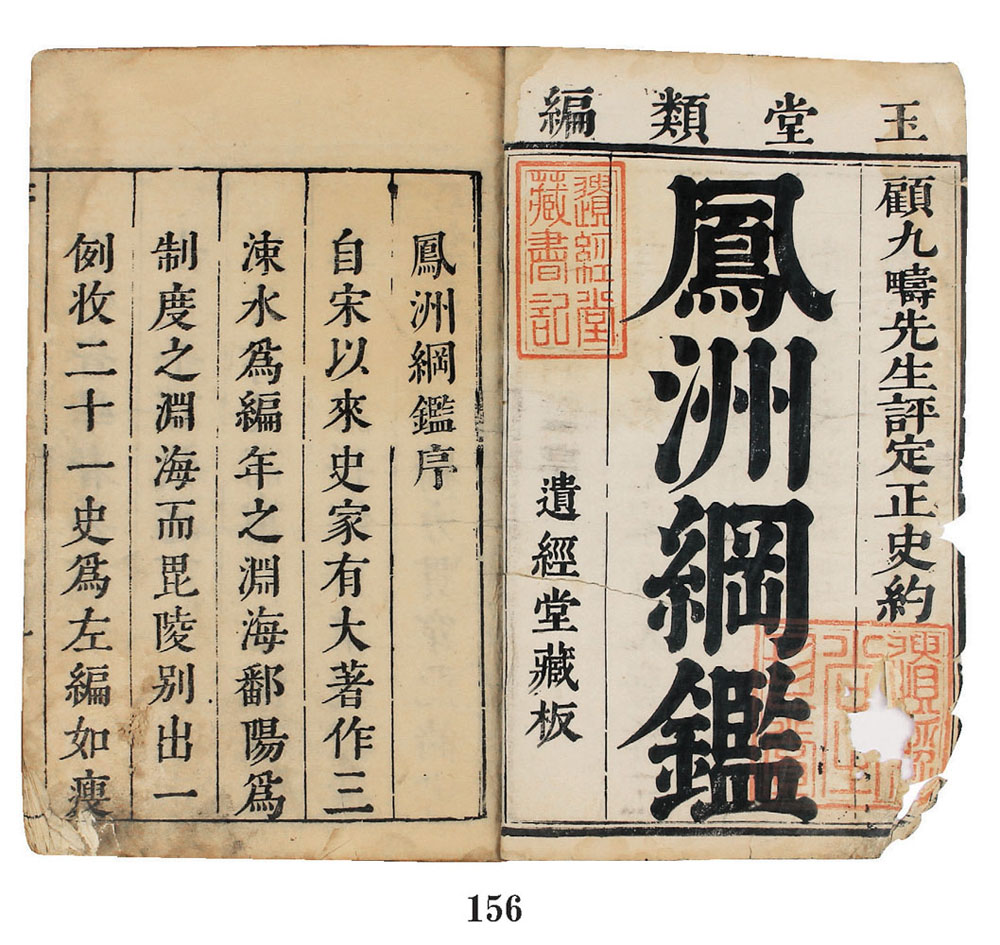 玉堂類編
顧九疇先生評定正史約
鳳洲綱鑑
遺經堂藏板
遺經堂
藏書記
鳳洲綱鑑序
自宋以來史家有大著作三
涑水爲編年之淵海鄱陽爲
制度之淵海而毘陵别出一
例收二十一史爲左編如瘦
156